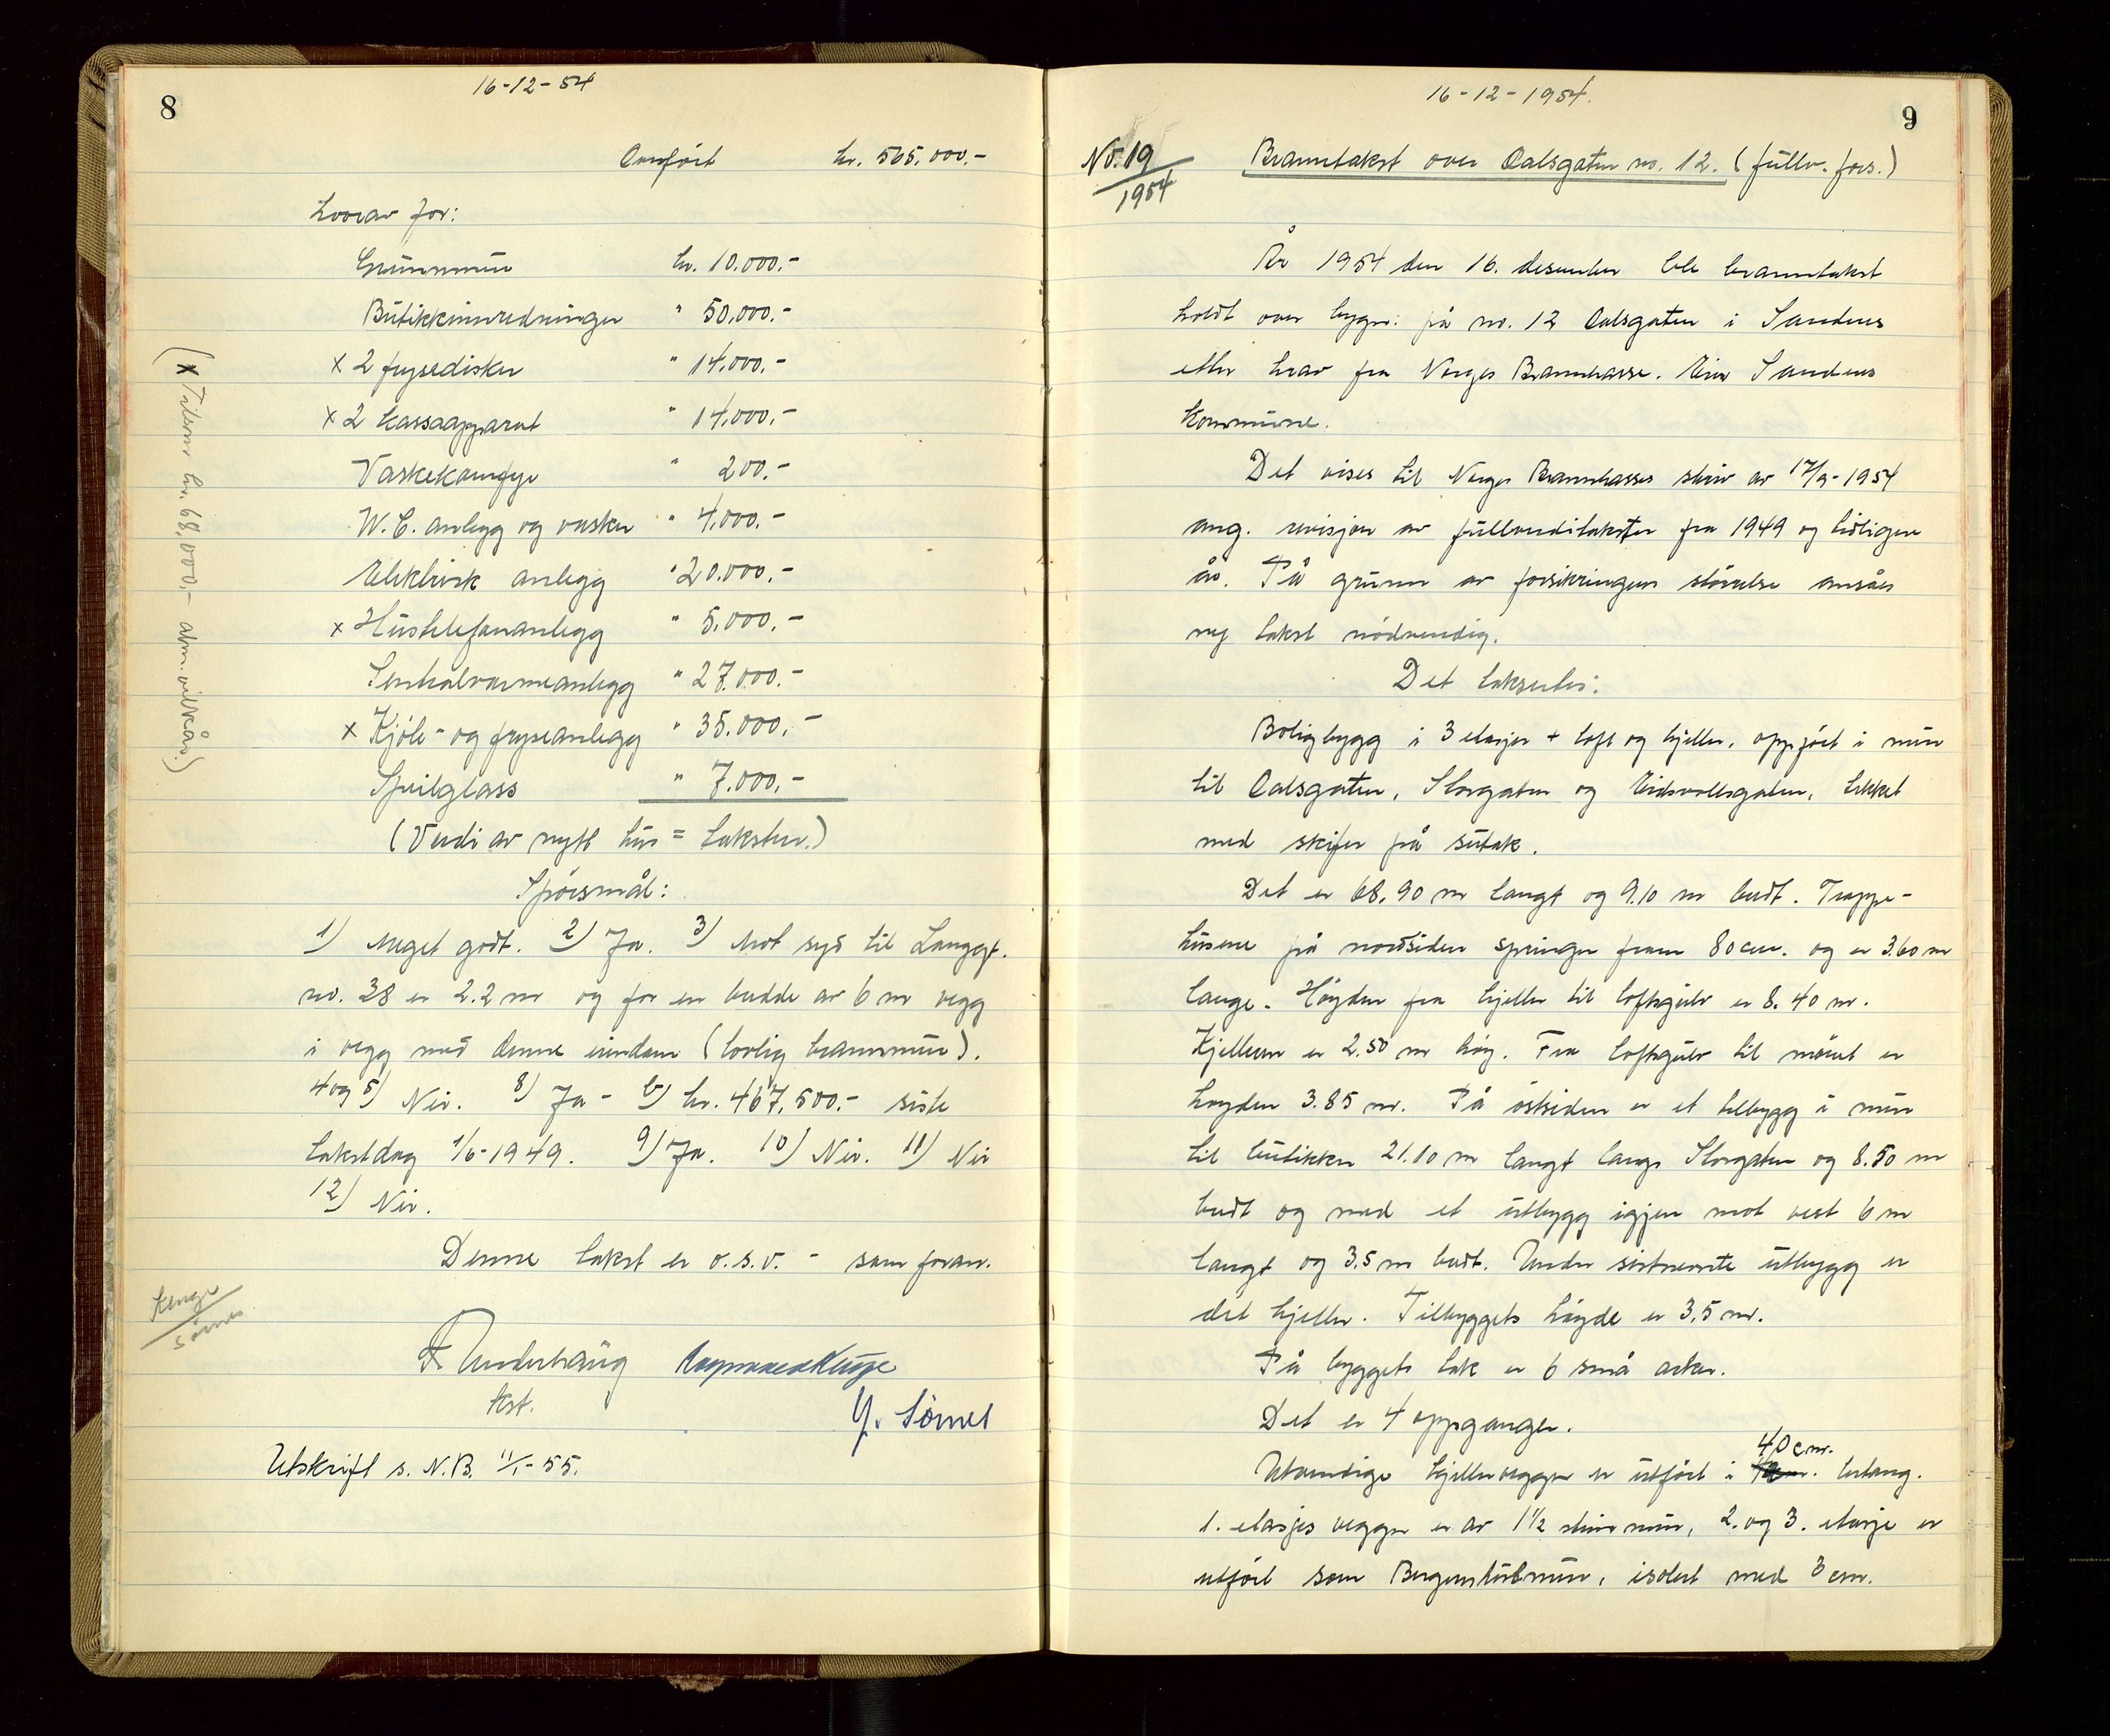 8
16-12-54
Overført kr. 565.000.-
Herav for:
Grunnmur kr. 10.000.-
Butikkinnredninger " 50.000.-
x 2 frysedisker " 14.000.-
x 2 kassaapparat " 14.000.-
Vaskekomfyr " 200.-
W.C. anlegg og vasker " 4.000.-
Elektrisk anlegg " 20.000.-
x Hustelefonanlegg " 5.000.-
Sentralvarmeanlegg " 27.000.-
x Kjøle- og fryseanlegg " 35.000.-
Speilglass " 7.000.-
(Verdi av nytt hus = taksten.)
(x Tilsm. kr. 68.000.- alm. vilkår.)
Spørsmål:
1) Meget godt. 2) Ja. 3) Mot syd til Langgt.
no. 38 er 2.2 m og for en bredde av 6 m vegg
i vegg med denne eiendom (lovlig brannmur).
4 og 5) Nei. 8) Ja - b) kr. 467.500.- siste
takstdag 1/6-1949. 9) Ja. 10) Nei. 11) Nei
12) Nei.
Denne takst er o.s.v. - som foran.
Kluge
Sömes
F. Underhaug Rasmus Kluge
kst.
Y. Sömes
Utskrift s. N.B. 11/1-55.
9
16-12-1954.
No. 19
1954
Branntakst over Dalsgaten no. 12. (fullv. fors.)
År 1954 den 16. desember ble branntakst
holdt over bygn. på no. 12 Dalsgaten i Sandnes
etter krav fra Norges Brannkasse. Eier Sandnes
Kommune.
Det vises til Norges Brannkasses skriv av 17/9-1954
ang. revisjon av fullverditakster fra 1949 og tidligere
år. På grunn av forsikringens størrelse ansåes
ny takst nødvendig.
Det takseres:
Boligbygg i 3 etasjer + loft og kjeller, oppført i mur
til Dalsgaten, Storgaten og Eidsvollsgaten, tekket
med skifer på sutak.
Det er 68,90 m langt og 9.10 m bredt. Trappe-
husene på nordsiden springer fram 80 cm. og er 3.60 m
lange. Høyden fra kjeller til loftsgulv er 8.40 m.
Kjelleren er 2.50 m høy. Fra loftsgulv til mønet er
høyden 3.85 m. På østsiden er et tilbygg i mur
til butikker 21.10 m langt langs Storgaten og 8.50 m
bredt og med et utbygg igjen mot vest 6 m
langt og 3.5 m bredt. Under sistnevnte utbygg er
det kjeller. Tilbyggets høyde er 3.5 m.
På byggets tak er 6 små arker.
Det er 4 oppganger.
Utvendige kjellervegger er utført i 40 cm. betong.
1. etasjes vegger er av 1 1/2 stens mur, 2. og 3. etasje er
utført som Bergenshulmur, isolert med 3 cm.